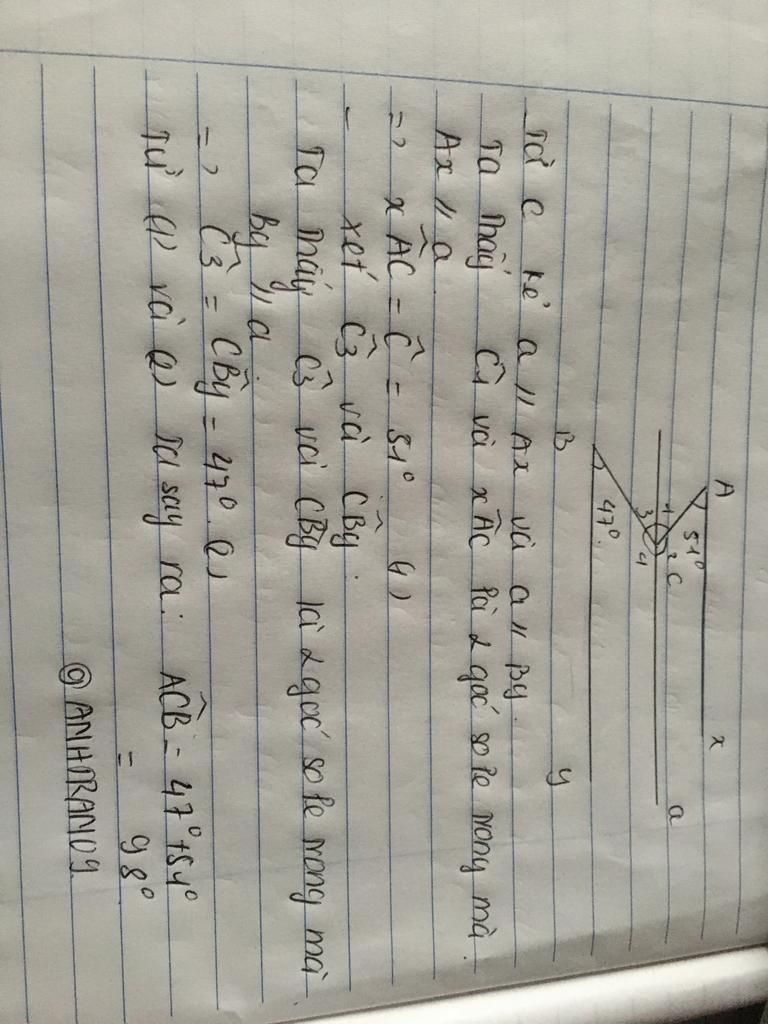 A
51°
x
1
2
C
a
3
4
B
47°.
y
Từ C kẻ a // Ax và a // By.
Ta thấy Ĉ1 và xÂC là 2 góc so le trong mà
Ax // a
=> xÂC = Ĉ = 51° (1)
- xét Ĉ3 và CB̂y.
Ta thấy Ĉ3 và CB̂y là 2 góc so le trong mà.
By // a
=> Ĉ3 = CB̂y = 47°. (2)
Từ (1) và (2) ta say ra: AĈB = 47° + 51°
= 98°
@ANHDRAN09